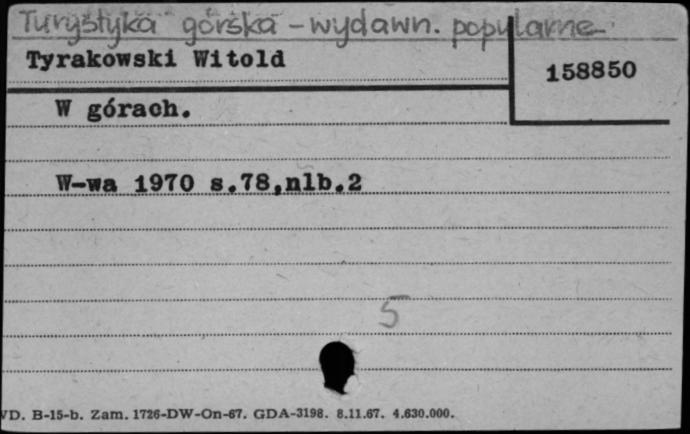 Turystyka górska - wydawn. popularne
Tyrakowski Witold
158850
W górach.
W-wa 1970 s.78,nlb.2
5
VD. B-15-b. Zam. 1726-DW-On-67. GDA-3198. 8.11.67. 4.630.000.